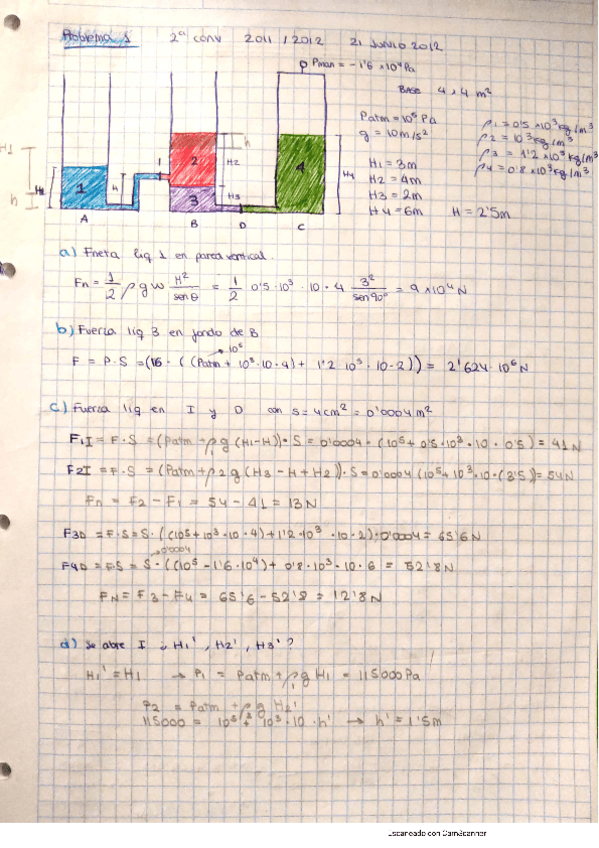 Problema 1 2ª conv 2011 / 2012 21 Junio 2012
Pman = -1'6 x10⁴ Pa
BASE 4 x 4 m²
Patm = 10⁵ Pa
g = 10 m/s²
H1 = 3m
H2 = 4m
H3 = 2m
H4 = 6m H = 2'5m
ρ1 = 0'5 x10³ kg/m³
ρ2 = 10³ kg/m³
ρ3 = 1'2 x10³ kg/m³
ρ4 = 0'8 x10³ kg/m³
H1
h
1
h
I
2
3
h
H2
H3
4
H4
A
B
D
C
a) Fneta liq 1 en pared vertical.
Fn = 1/2 ρ g w H²/sen θ = 1/2 0'5·10³ · 10 · 4 3²/sen90° = 9 x10⁴ N
b) Fuerza liq 3 en fondo de B
10⁵
F = P·S = (16 · ((Patm + 10³·10·4) + 1'2 10³ · 10·2)) = 2'624·10⁶ N
c) Fuerza liq en I y D con s = 4cm² = 0'0004 m²
F1I = F·S = (Patm + ρ1 g (H1-H))·S = 0'0004 · (10⁵ + 0'5·10³ · 10 · 0'5) = 41 N
F2I = F·S = (Patm + ρ2 g (H3 - H + H2))·S = 0'0004 (10⁵ + 10³·10·(3'5)) = 54N
Fn = F2 - F1 = 54 - 41 = 13 N
F3D = F·S = S· ((10⁵ + 10³ · 10 · 4) + 1'2·10³ · 10 · 2)·0'0004 = 65'6 N
0'0004
F4D = F·S = S · ((10⁵ - 1'6·10⁴) + 0'8·10³·10·6 = 52'8 N
FN = F3 - F4 = 65'6 - 52'8 = 12'8 N
d) Se abre I ¿ H1', H2', H3' ?
H1' = H1 → P1 = Patm + ρ1 g H1 = 115000 Pa
P2 = Patm + ρ2 g H2'
115000 = 10⁵ + 10³ · 10 · h' → h' = 1'5m
Escaneado con CamScanner